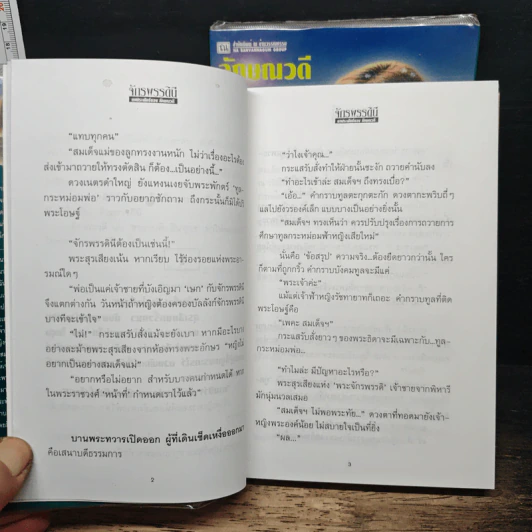 จักรพรรดินี
"แทบทุกคน"
"สมเด็จแม่ของลูกทรงงานหนัก ไม่ว่าเรื่องอะไรต้อง
ส่งเข้ามาถวายให้ทรงตัดสิน ก็ต้อง...เป็นอย่างนี้..."
ดวงเนตรดำใหญ่ ยังแหงนเงยจับพระพักตร์ "ทูล-
กระหม่อมพ่อ" ราวกับอยากซักถาม ถึงกระนั้นก็มิได้
พระโอษฐ์
"จักรพรรดินีต้องเป็นเช่นนี้!"
พระสุรเสียงเน้น หากเรียบ ไร้ร่องรอยแห่งพระอา-
รมณ์ใดๆ
"พ่อเป็นแค่เจ้าชายที่บังเอิญมา 'เษก' กับจักรพรรดินี
จึงแตกต่างกัน วันหน้าถ้าหญิงต้องครองบัลลังก์จักรพรรดินี
บางทีจะเข้าใจ"
"ไม่!" กระแสรับสั่งแม้จะยังเบา หากมีอะไรบาง
อย่างละม้ายพระสุรเสียงจากห้องทรงพระอักษร "หญิงไม่
อยากเป็นอย่างสมเด็จแม่"
"อยากหรือไม่อยาก สำหรับบางคนกำหนดได้ หาก
ในพระราชวงศ์ 'หน้าที่' กำหนดเราไว้แล้ว"
บานพระทวารเปิดออก ผู้ที่เดินเช็ดเหงื่อออกมา
คือเสนาบดีธรรมการ
2
จักรพรรดินี
"ว่าไงเจ้าคุณ..."
กระแสรับสั่งทำให้ฝ่ายนั้นชะงัก ถวายคำนับลง
"ทำอะไรเข้าล่ะ สมเด็จฯ ถึงทรงเบื่อ?"
"เอ้อ..." คำกราบทูลตะกุกตะกัก ดวงตากะพริบถี่ๆ
แลไปยังวรองค์เล็ก แบบบางเป็นอย่างยิ่งนั้น
"สมเด็จฯ ทรงเห็นว่า ควรปรับปรุงเรื่องการถวายการ
ศึกษาทูลกระหม่อมฟ้าหญิงเสียใหม่"
นั่นคือ 'ข้อสรุป' ความจริง...ต้องยืดยาวกว่านั้น ใคร
ก็ตามที่ถูกกริ้ว คำกราบบังคมทูลจะมีแค่
"พระเจ้าค่ะ"
แม้แต่เจ้าฟ้าหญิงรัชทายาทก็เถอะ คำกราบทูลที่ติด
พระโอษฐ์คือ
"เพคะ สมเด็จฯ"
กระแสรับสั่งยาวๆ ของพระธิดาจะมีเฉพาะกับ...ทูล-
กระหม่อมพ่อ...
"ทำไมล่ะ มีปัญหาอะไรหรือ?"
พระสุรเสียงแห่ง 'พระจักรพรรดิ' เจ้าชายจากพิหารี
มักนุ่มนวลเสมอ
"สมเด็จฯ ไม่พอพระทัย..." ดวงตาที่ทอดมายังเจ้า-
หญิงพระองค์น้อย ไม่สบายใจเป็นที่ยิ่ง
"ผล..."
3